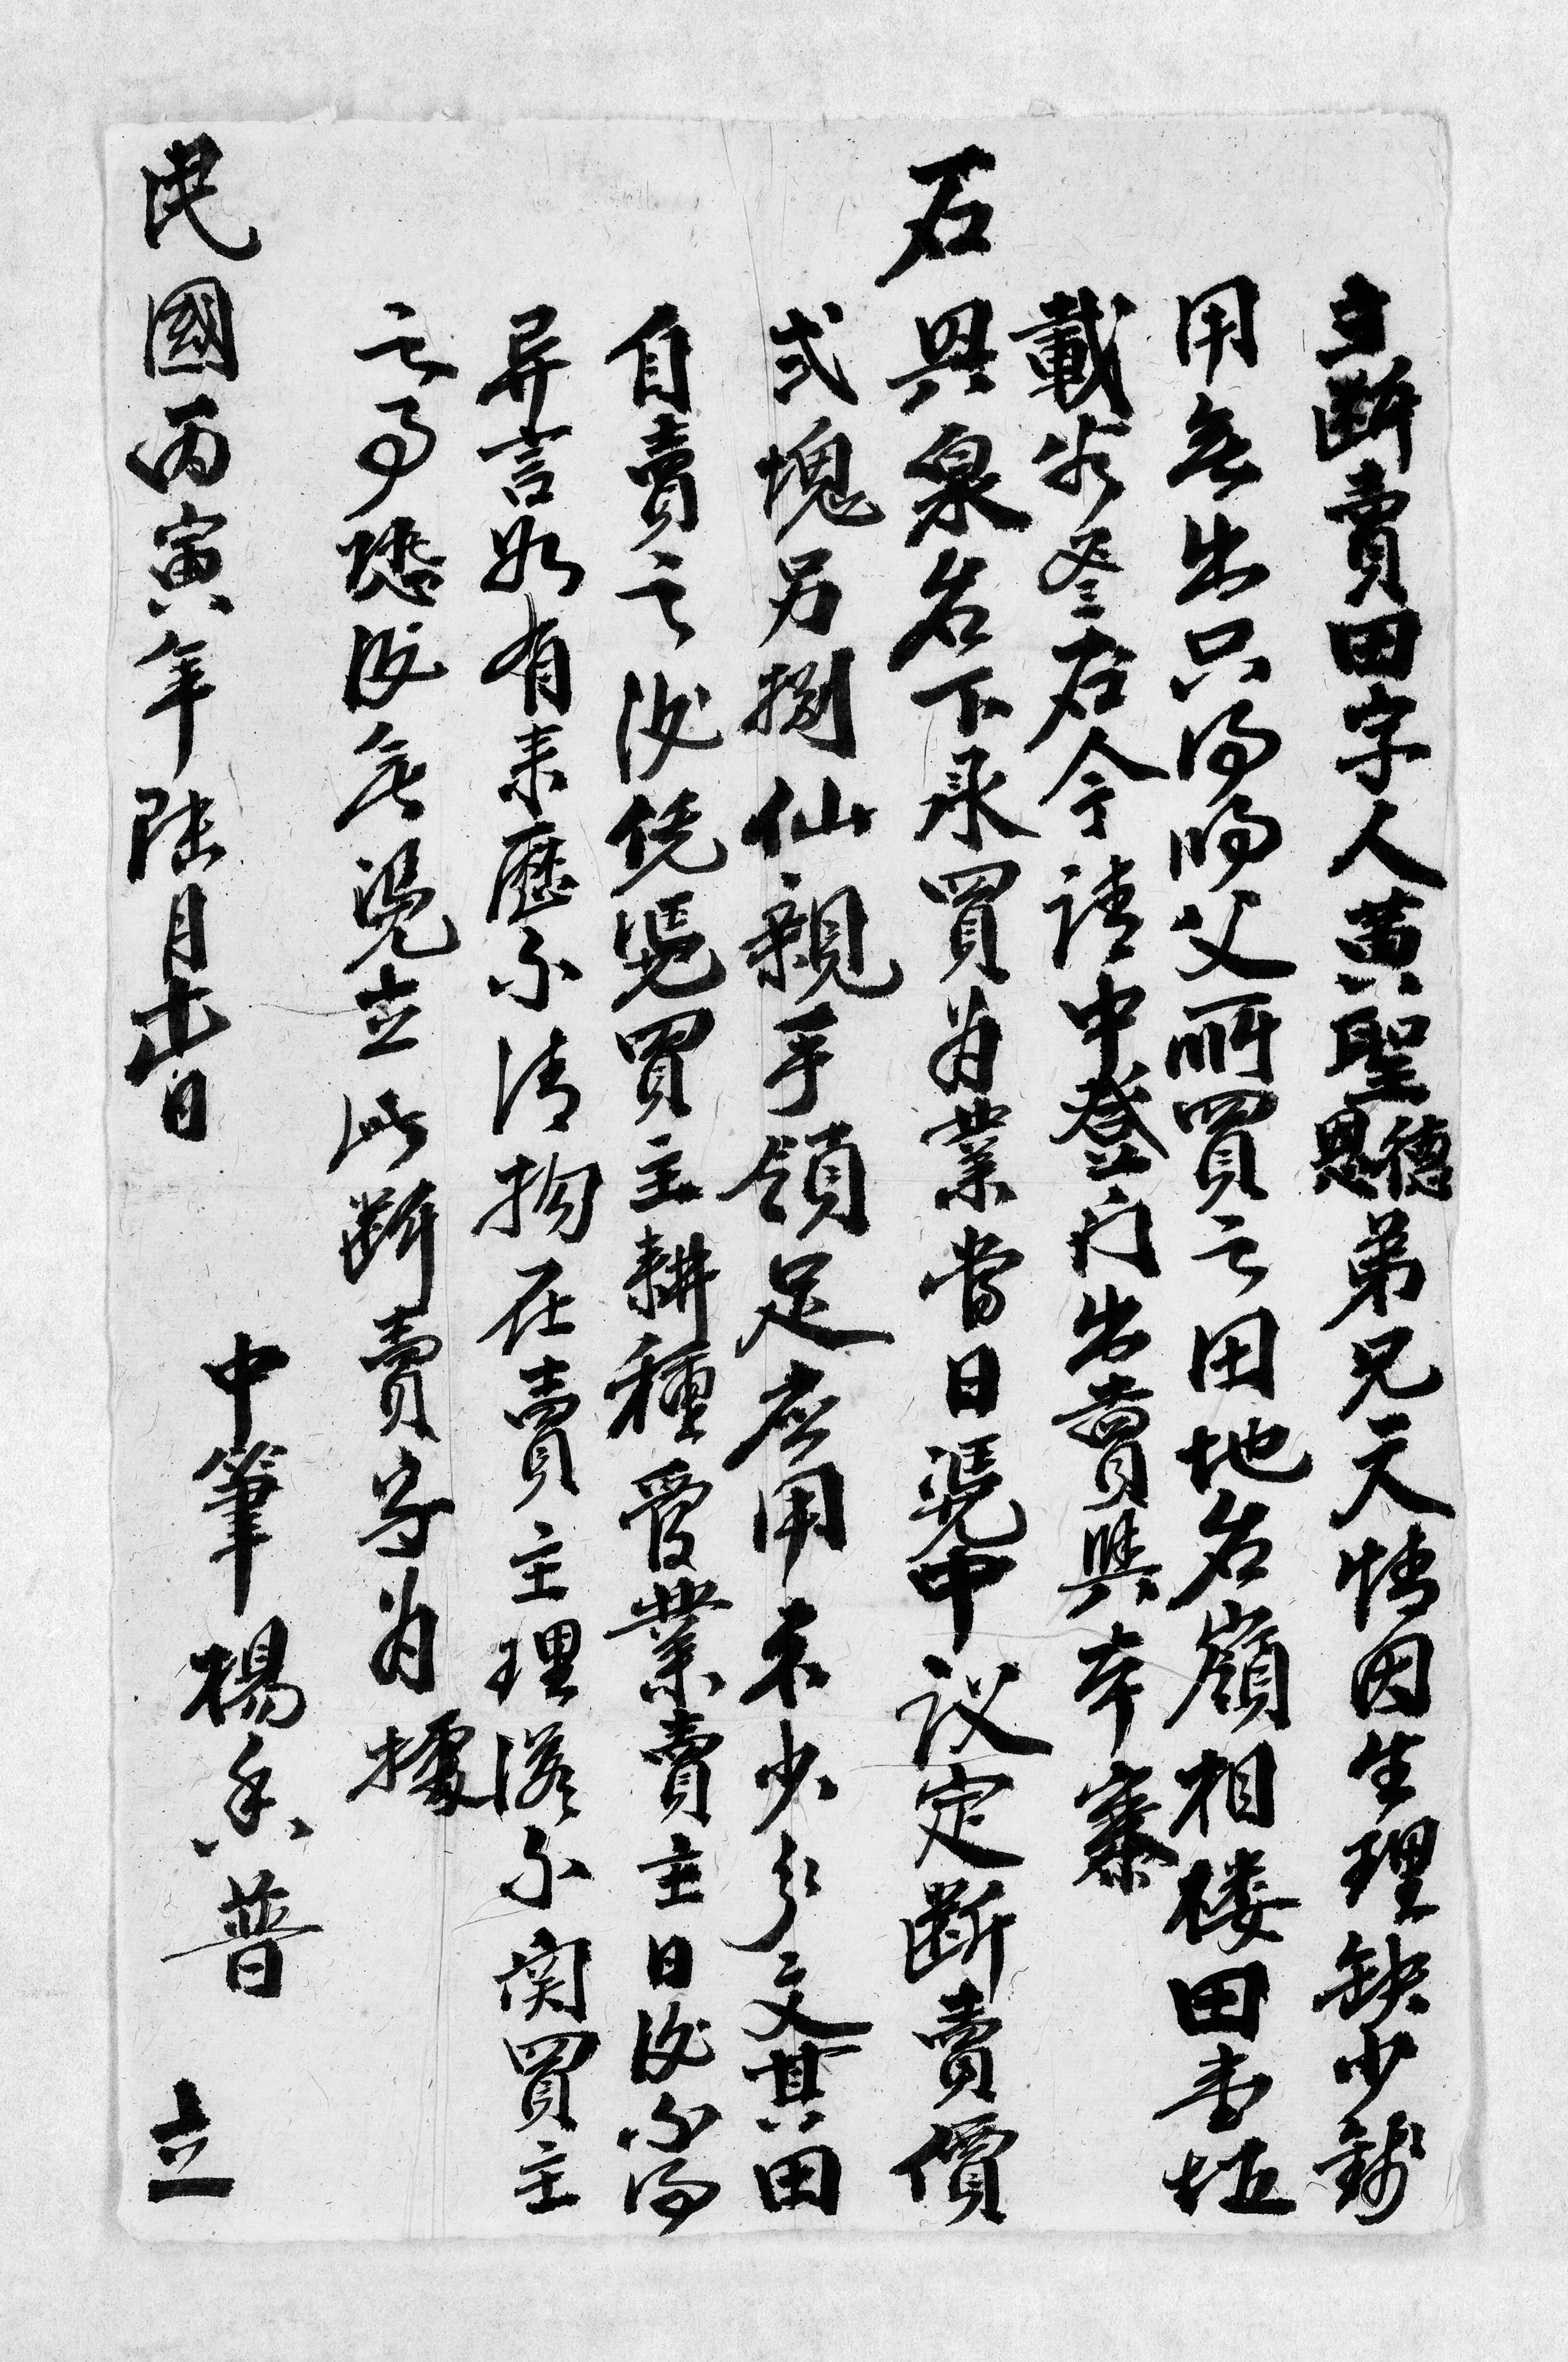 立断賣田字人黄聖德恩弟兄天情因生理缺少錢
用無出只得將父所買之田地名嶺相楼田壹坵
載谷叁石今請中登门出賣與本寨
石興泉名下承買为業當日凴中议定断賣價
弍塊另捌仙親手領足应用未少分文其田
自賣之後凴買主耕種管業賣主日後不得
异言如有来歷不清抅在賣主理落不関買主
之事恐後無凴立此断賣字为據
中筆楊香普
民國丙寅年陆月十四日 立